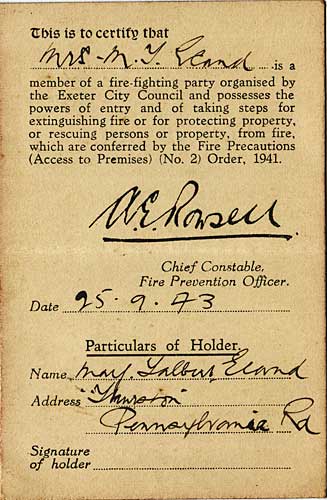 This is to certify that
Mrs. M. T. Eland is a
member of a fire-fighting party organised by
the Exeter City Council and possesses the
powers of entry and of taking steps for
extinguishing fire or for protecting property,
or rescuing persons or property, from fire,
which are conferred by the Fire Precautions
(Access to Premises) (No. 2) Order, 1941.
A.E. Rowsell
Chief Constable,
Fire Prevention Officer.
Date 25.9.43
Particulars of Holder.
Name May. Talbut Eland
Address "Thurston"
Pennsylvania Rd
Signature
of holder